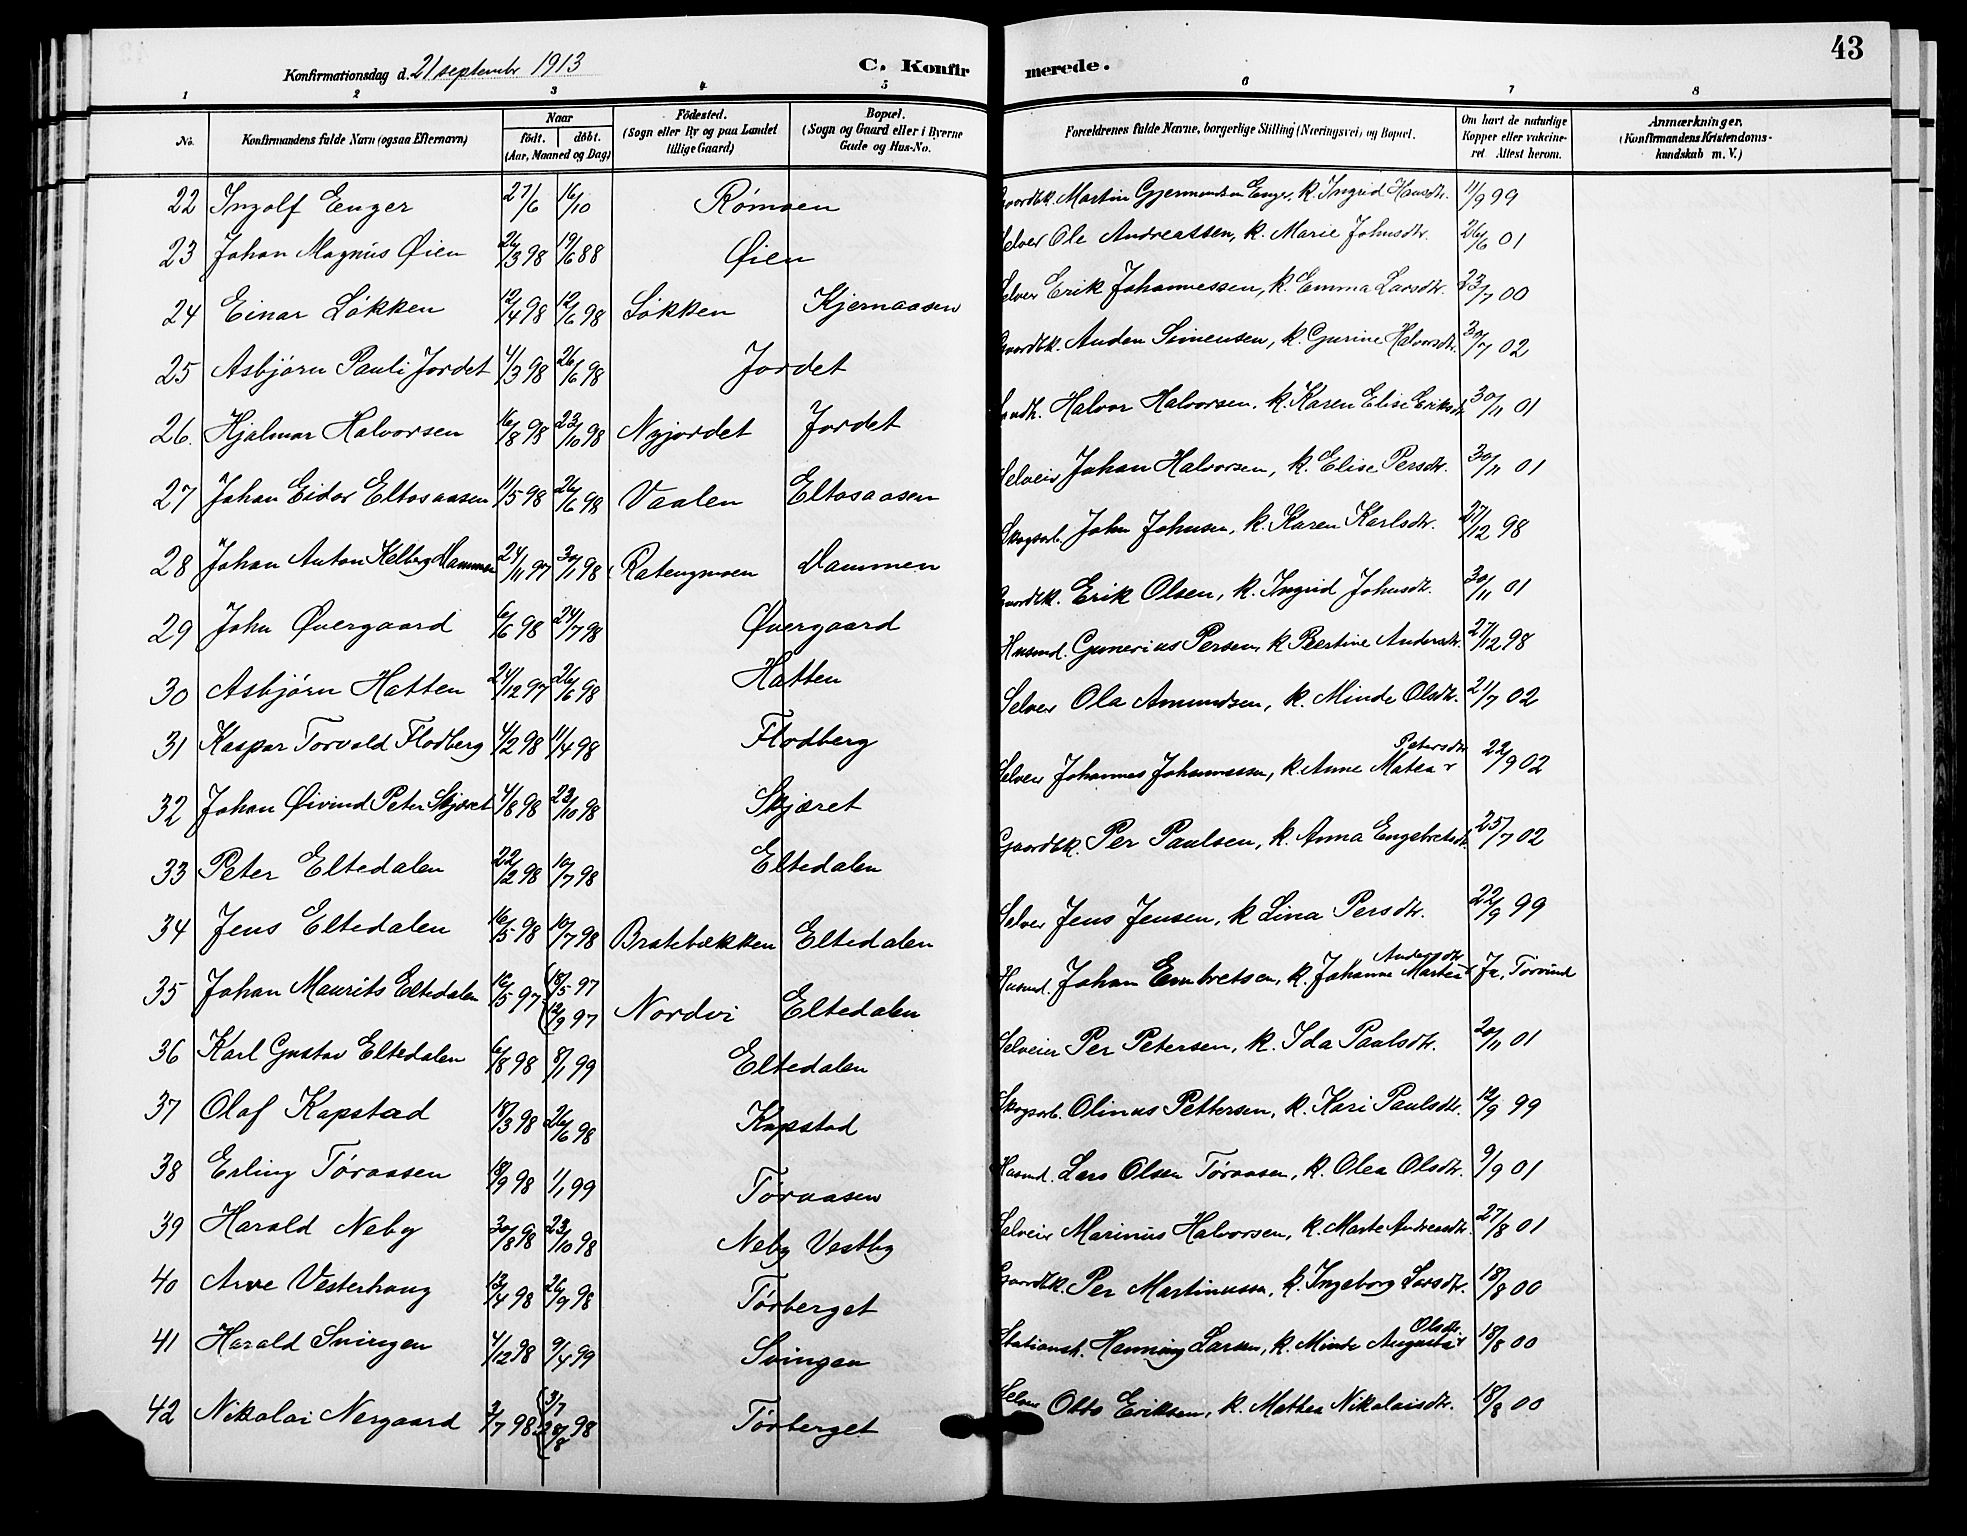 43
Konfirmationsdag d. 21 septembr 1913 C. Konfirmerede.
1 2 3 4 5 6 7 8
No. Konfirmandens fulde Navn (ogsaa Efternavn) Naar født. døbt. (Aar, Maaned og Dag) Fødested. (Sogn eller By og paa Landet tillige Gaard) Bopæl. (Sogn og Gaard eller i Byerne Gade og Hus-No. Forældrenes fulde Navne, borgerlige Stilling (Næringsvei) og Bopæl. Om havt de naturlige Kopper eller vakcineret Attest herom. Anmærkninger, (Konfirmandens Kristendomskundskab m. V.)
22 Ingolf Enger 27/6 16/10 Rømoen Gaardbk. Martin Gjermundsen Enger, k. Ingrid Hansdtr. 11/9 99
23 Johan Magnus Øien 26/3 98 19/6 88 Øien Selveier Ole Andreassen, k. Marie Johnsdtr. 26/6 01
24 Einar Løkken 12/4 98 12/6 98 Løkken Kjernaasen Selveier Erik Johannessen, k. Emma Larsdtr. 23/7 00
25 Asbjørn Pauli Jordet 4/3 98 26/6 98 Jordet Gaardbk. Auden Simensen, k. Gurine Halvorsdtr. 30/7 02
26. Hjalmar Halvorsen 16/8 98 23/10 98 Nyjordet Jordet Halvor Halvorsen, k. Karen Elise Eriksdtr. 30/11 01
27 Johan Eidor Eltosaasen 11/5 98 26/6 98 Vaalen Eltosaasen Selveier Johan Halvorsen, k. Elise Persdtr. 30/11 01
28 Johan Anton Kelberg Dammen 24/11 97 30/1 98 Ratengmoen Dammen Skogsarb. John Johnsen, k. Karen Karlsdtr. 27/12 98
29 John Øvergaard 6/6 98 24/7 98 Øvergaard Gaardbk. Erik Olsen, k. Ingrid Johnsdtr. 30/11 01
30 Asbjørn Hatten 24/12 97 26/6 98 Hatten Husmd. Gunerius Persen, k. Peertine Andersdtr. 27/12 98
31 Kaspar Torvald Flodberg 4/2 98 11/4 98 Flodberg Selveier Ola Amundsen, k. Minde Olsdtr. 21/7 02
32 Johan Øivind Peter Skjæret 4/8 98 23/10 98 Skjæret Selveier Johannes Johannessen, k. Anne Matea Petersdtr. 22/9 02
33 Peter Eltedalen 22/2 98 10/7 98 Eltedalen Gaardbk. Per Paulsen, k. Anna Engebretsdtr. 25/7 02
34 Jens Eltedalen 16/5 98 10/7 98 Bratebækken Eltedalen Selveier Jens Jensen, k. Lina Persdtr. 22/9 99
35 Johan Maurits Eltedalen 16/5 97 (18/5 97 12/9 97 Nordvi Eltedalen Husmd. Johan Embretsen, k. Johanne Martea Andersdtr. Ja, Tørvind
36 Karl Gustav Eltedalen 6/8 98 8/1 99 Eltedalen Selveier Per Petersen, k. Ida Paulsdtr. 20/11 01
37 Olaf Kapstad 18/3 98 26/6 98 Kapstad Skogsarb. Olinus Pettersen, k. Kari Paulsdtr. 12/9 99
38 Erling Tøraasen 18/9 98 1/1 99 Tøraasen Husmd. Lars Olsen Tøraasen, k. Olea Olsdtr. 9/9 01
39 Harald Neby 30/8 98 23/10 98 Neby Vestby Selveier Marinus Halvorsen, k. Marte Andreasdtr. 27/8 01
40 Arve Vesterhaug 13/4 98 26/9 98 Tørberget Gaardbk. Per Martinussen, k. Ingeborg Larsdtr. 18/8 00
41 Harald Svingen 4/12 98 9/4 99 Svingen Stationsh. Henning Larsen, k. Minda Augusta Olsdtr. 18/8 00
42 Nikolai Nergaard 2/7 98 (3/7 28/8 98 Tørberget Selveier Otto Eriksen, k. Mathea Nikolaisdtr. 18/8 00